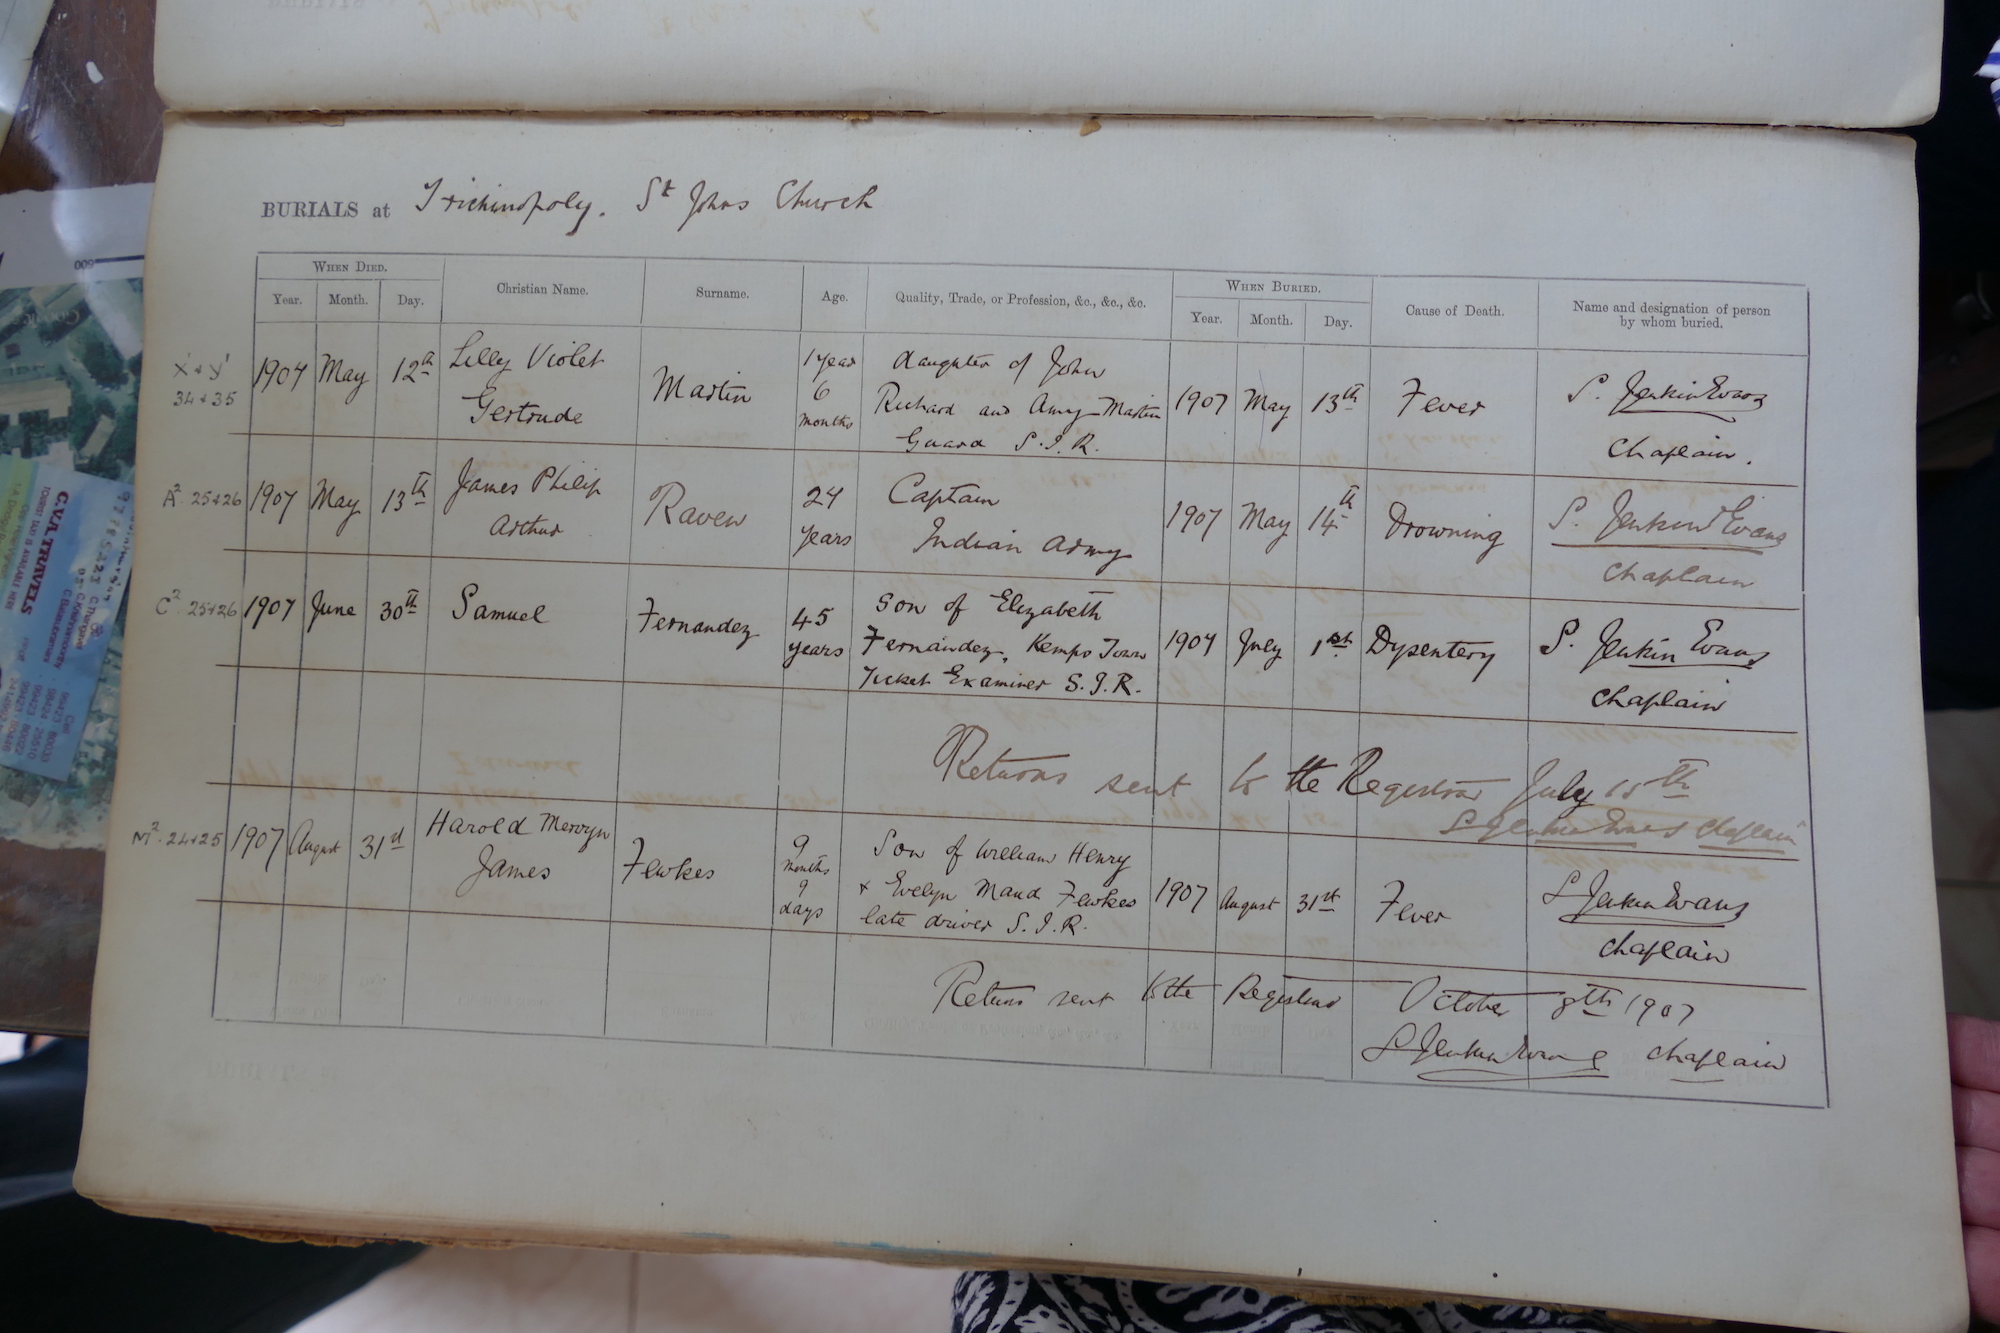 BURIALS at Trichinopoly. St Johns Church
WHEN DIED.
Year. Month. Day.
Christian Name.
Surname.
Age.
Quality, Trade, or Profession, &c., &c., &c.
WHEN BURIED.
Year. Month. Day.
Cause of Death.
Name and designation of person
by whom buried.
34 + 35
1907 May 12th
Lilly Violet
Gertrude
Martin
1 year
6
months
daughter of John
Richard and Amy Martin
Guard S.I.R.
1907 May 13th
Fever
S. Jenkin Evans
Chaplain.
A2 25+26
1907 May 13th
James Philip
Arthur
Raven
24
years
Captain
Indian Army
1907 May 14th
Drowning
S. Jenkin Evans
Chaplain
C2 25+26
1907 June 30th
Samuel
Fernandez
45
years
Son of Elizabeth
Fernandez, Kemps Town
Ticket Examiner S.I.R.
1907 July 1st
Dysentery
S. Jenkin Evans
Chaplain
Returns sent to the Registrar July 15th
S Jenkin Evans Chaplain
M2 24+25
1907 August 31st
Harold Mervyn
James
Fewkes
9
months
9
days
Son of William Henry
& Evelyn Maud Fewkes
late driver S.I.R.
1907 August 31st
Fever
S Jenkin Evans
Chaplain
Returns sent to the Registrar October 8th 1907
S Jenkin Evans Chaplain
600
Google
C.V.A. TRAVELS
TOURIST TAXI IS AVAILABLE HERE